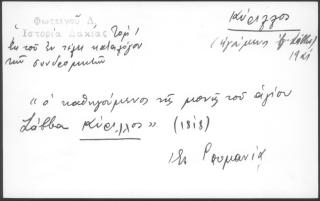 Φωτεινοῦ Δ.
Ἱστορία Δακίας Τομ. 1
Ἐκ τοῦ ἐν τέλει καταλόγου
τῶν συνδρομητῶν
Κύριλλος
(ἡγούμενος Ἁγ. Σάββα)
"ὁ καθηγούμενος τῆς μονῆς τοῦ ἁγίου
Σάββα Κύριλλος" (1818)
Ἐν Ρουμανίᾳ